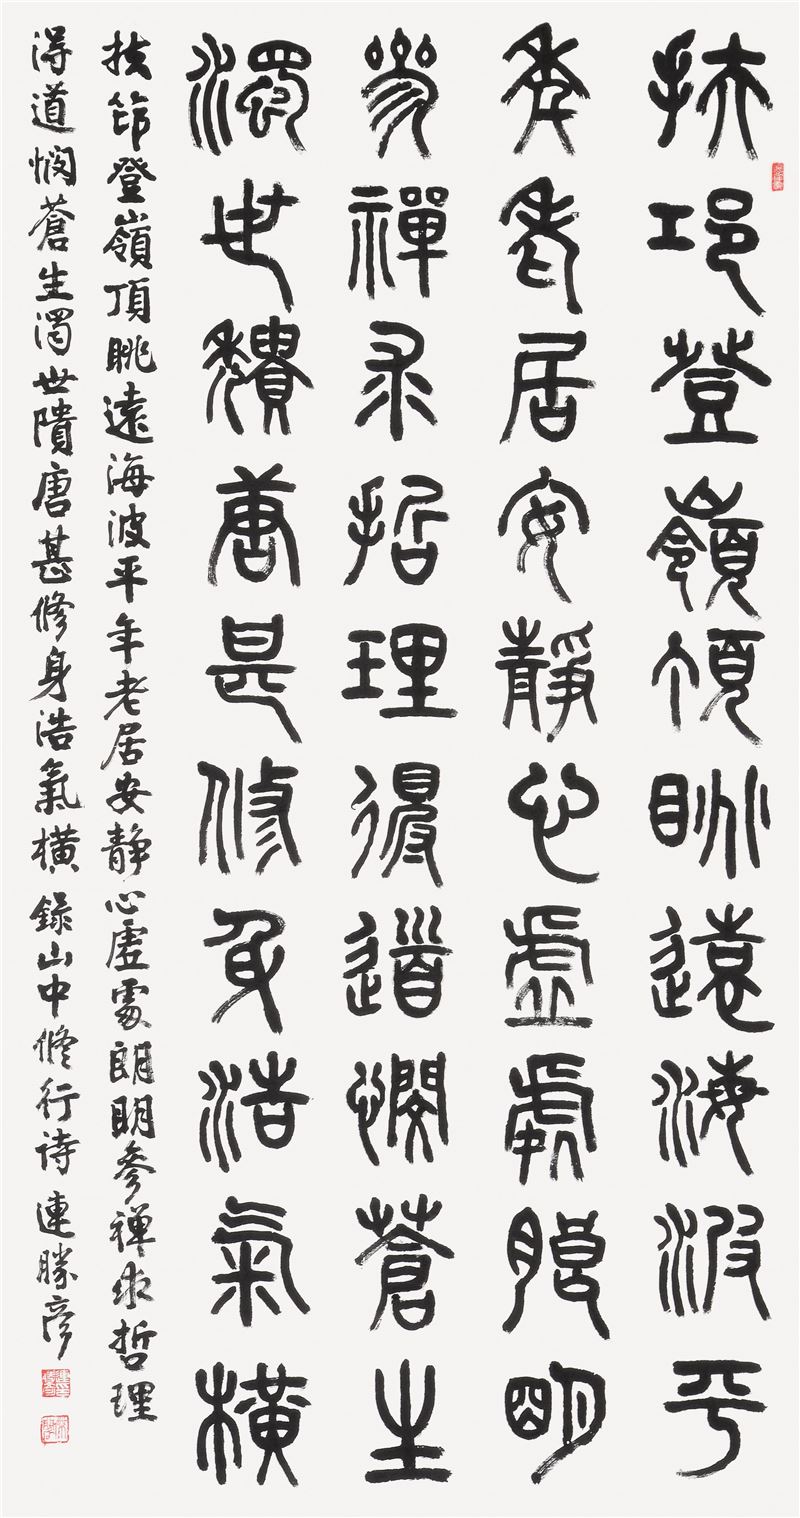 扶邛登嶺頂眺遠海波平
年老居安靜心虛處朗明
參禪求哲理得道憫蒼生
濁世穨唐甚修身浩氣橫
扶筇登嶺頂眺遠海波平年老居安靜心虛處朗明參禪求哲理
得道憫蒼生濁世隤唐甚脩身浩氣橫 錄山中脩行詩 連勝彥